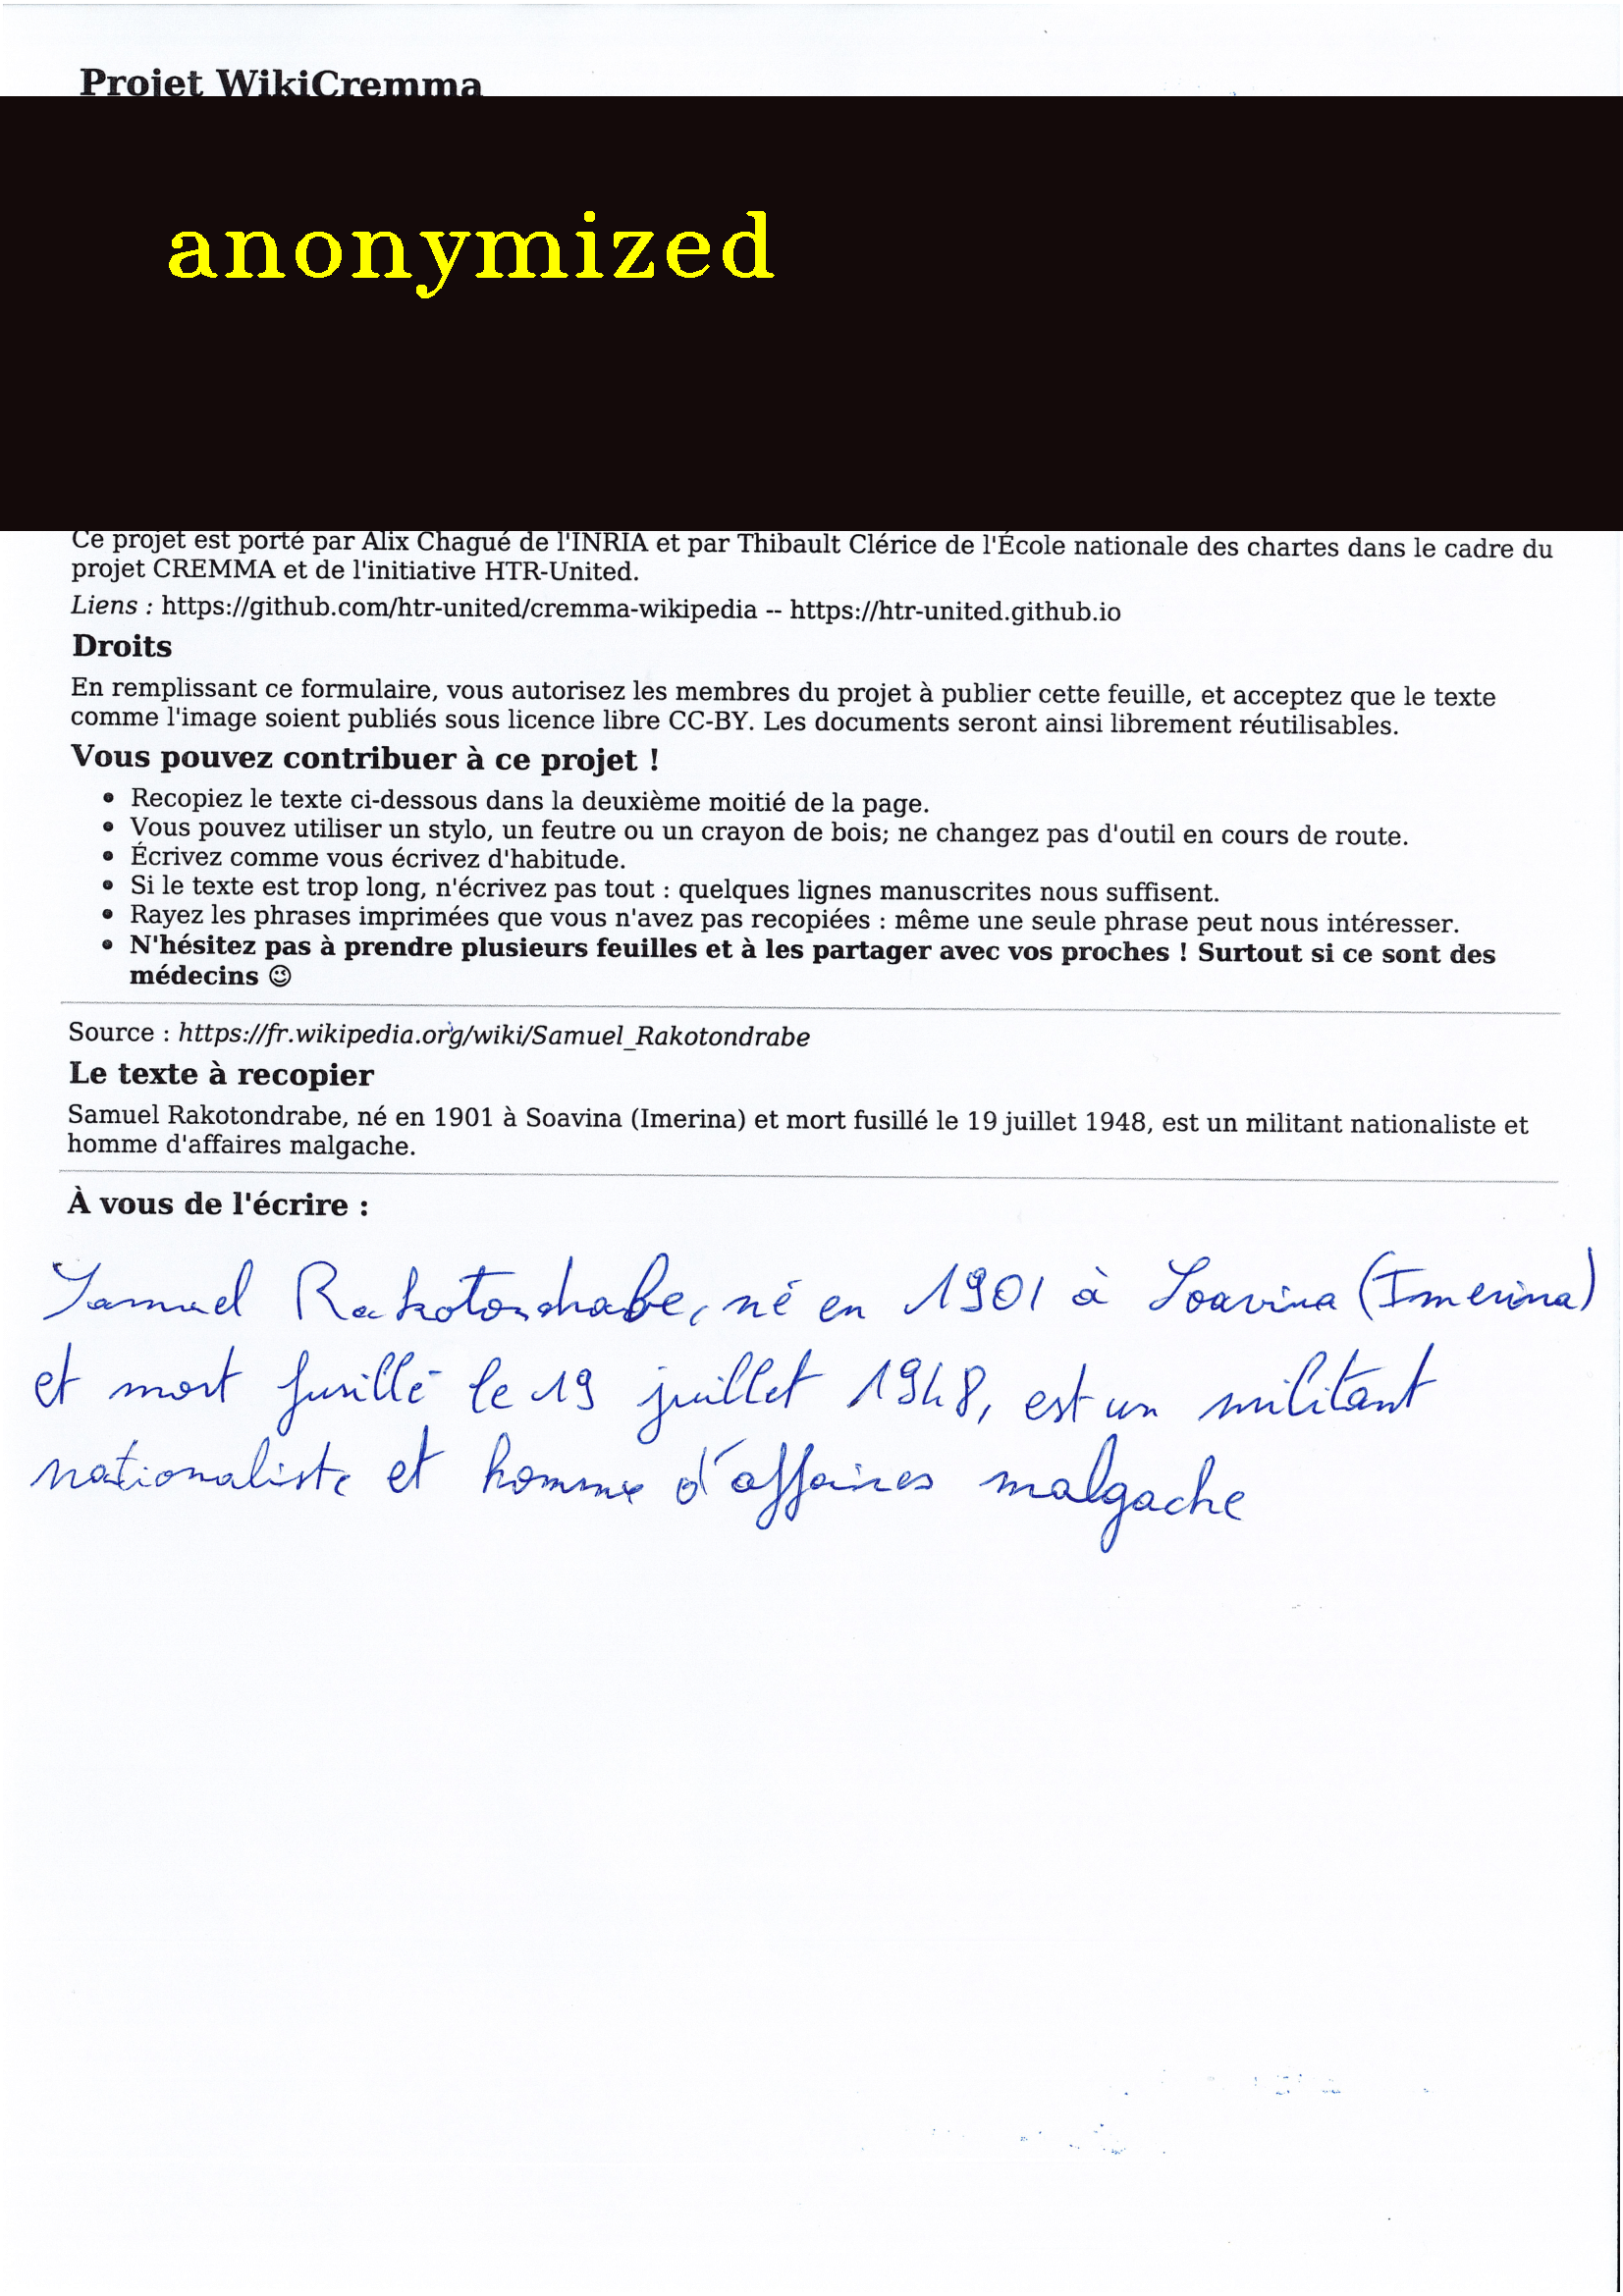 Projet WikiCremma
anonymized
Ce projet est porté par Alix Chagué de l'INRIA et par Thibault Clérice de l'École nationale des chartes dans le cadre du
projet CREMMA et de l'initiative HTR-United.
Liens : https://github.com/htr-united/cremma-wikipedia -- https://htr-united.github.io
Droits
En remplissant ce formulaire, vous autorisez les membres du projet à publier cette feuille, et acceptez que le texte
comme l'image soient publiés sous licence libre CC-BY. Les documents seront ainsi librement réutilisables.
Vous pouvez contribuer à ce projet !
• Recopiez le texte ci-dessous dans la deuxième moitié de la page.
• Vous pouvez utiliser un stylo, un feutre ou un crayon de bois; ne changez pas d'outil en cours de route.
• Écrivez comme vous écrivez d'habitude.
• Si le texte est trop long, n'écrivez pas tout : quelques lignes manuscrites nous suffisent.
• Rayez les phrases imprimées que vous n'avez pas recopiées : même une seule phrase peut nous intéresser.
• N'hésitez pas à prendre plusieurs feuilles et à les partager avec vos proches ! Surtout si ce sont des
médecins ☺
Source : https://fr.wikipedia.org/wiki/Samuel_Rakotondrabe
Le texte à recopier
Samuel Rakotondrabe, né en 1901 à Soavina (Imerina) et mort fusillé le 19 juillet 1948, est un militant nationaliste et
homme d'affaires malgache.
À vous de l'écrire :
Samuel Rakotondrabe, né en 1901 à Soavina (Imerina)
et mort fusillé le 19 juillet 1948, est un militant
nationaliste et homme d'affaires malgache